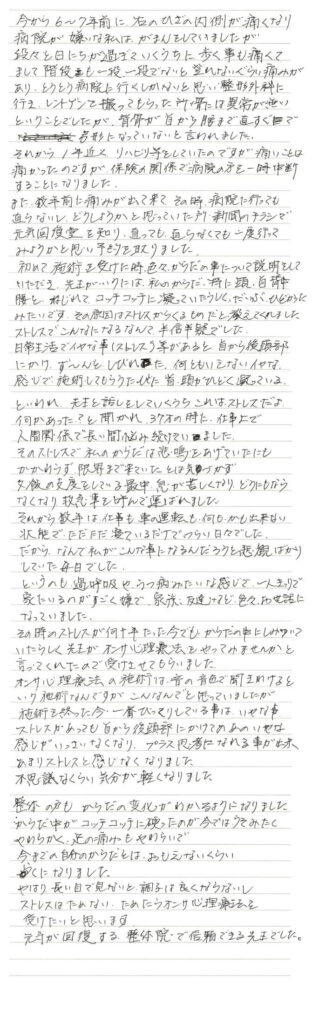 今から6〜7年前に右のひざの内側が痛くなり
病院が嫌いな私は、がまんをしていましたが
段々と日にちが過ぎていくうちに歩く事も痛くて
まして階段も一段一段でないと登れないぐらい痛みが
あり、とうとう病院に行くしかないと思い整形外科に
行き、レントゲンを撮ってもらった所骨には異常が無い
ということでしたが、背骨が首から腰まで直すぐで
弯形になっていないと言われました。
それから1年近くリハビリ等をしていたのですが痛いことは
痛かったのですが保険の関係で病院の方を一時中断
することになりました。
また、数年前に痛みが出て来てその時、病院に行っても
直らないし、どうしようかと思っていた所、新聞のチラシで
元気回復堂を知り、直っても、直らなくても一度行って
みようかと思い予約を入れました。
初めて施術を受けた時、色々からだの事について説明をして
いただき、先生がいうには、私のからだ、特に頭、首背中
腰と、ねじれてコッチコッチに凝っていたらしく、だいぶひどかった
みたいです。その原因はストレスからくるものだと教えてくれました
ストレスでこんなになるなんて半信半疑でした。
日常生活でイヤな事(ストレス)等があると首から後頭部
にかけ、ずーんとしびれた、何ともいえないイヤな
感じで、施術してもらうたびに首、頭がひどく凝っている。
といわれ、先生と話をしていくうちこれはストレスだよ
何かあった?と聞かれ、37才の時に、仕事上で
人間関係で長い間悩み続けていました。
そのストレスで私のからだは悲鳴をあげていたにも
かかわらず限界まで来ていたとは気づかず
夕飯の支度をしている最中、息が苦しくなり、どうにもなら
なくなり救急車を呼んで運ばれました。
それから数年は仕事も車の運転も何もかも出来ない
状態で、ただただ寝ているだけでつらい日々でした。
だから、なんで私がこんな事になるんだろうと悲観ばかり
していた毎日でした。
というのも過呼吸やうつ病みたいな感じで、一人きりで
家にいるのがすごく嫌で、家族、友達など、色々お世話に
なっていました。
その時のストレスが何十年たった今でもからだの中にしみついて
いたらしく先生がオンサ心理療法をやってみませんかと
言ってくれたので受けさせてもらいました。
オンサ心理療法の施術は、音の音色で聞きわけると
いう施術なんですがこんなんでと思っていましたが
施術を終った今、一番びっくりしている事は、いやな事
ストレスがあっても首から後頭部にかけてのあのいやな
感じがいっさいなくなり、プラス思考になれる事が出来
あまりストレスと感じなくなりました。
不思議なくらい気分が軽くなりました。
整体の方もからだの変化がわかるようになりました
からだ中がコッチコッチに硬ったが今ではうそみたく
やわらかく、足の痛みもやわらいで
今までの自分のからだとは、おもえないくらい
楽になりました。
やはり長い目で見ないと、調子は良くならないし
ストレスはためない、ためたらオンサ心理療法を
受けたいと思います
元気が回復する、整体院で信頼できる先生でした。